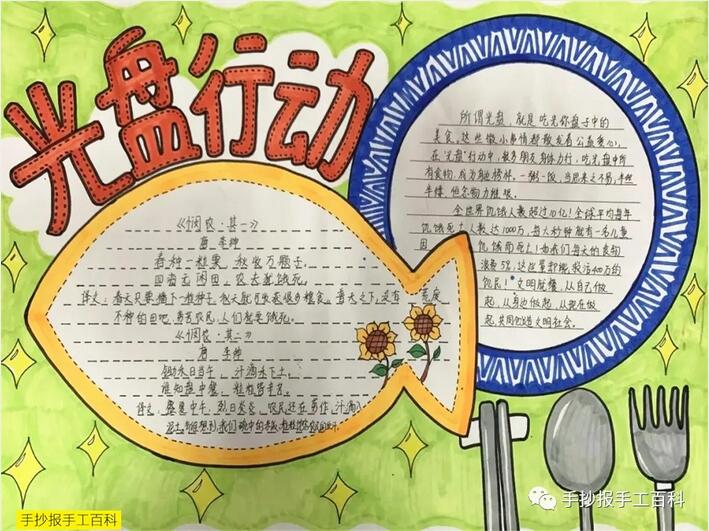 光盘行动
《悯农·其一》
唐 李绅
春种一粒粟，秋收万颗子。
四海无闲田，农夫犹饿死。
译文：春天只要播下一粒种子，秋天就可收获很多粮食。普天之下，没有荒废
不种的田地，劳苦农民，人们
饿死。
《悯农·其二》
唐 李绅
锄禾日当午，汗滴禾下土。
谁知盘中餐，粒粒皆辛苦。
译文：盛夏中午，烈日炎炎，农民还在劳作，汗滴入
泥土，
想到，我们碗中的
粒粒
所谓光盘，就是吃光你盘子中的
美食。这些微小事情都散发着公益爱心，
在“光盘”行动中，很多朋友身体力行，吃光盘中所
有食物，成为
榜样。一粥一饭，当思来之不易，半丝
半缕，恒念物力维艰。
全世界饥饿人数超过10亿！全球平均每年
饿死亡人数达1000万，每六秒钟就有一名儿童
因饥饿而死亡！如我们每天的食物
浪费5%，这些量却能救活400万的
饥民！文明就餐，从自己做
起，从身边做起，从现在做
起，共同创造文明社会。
手抄报手工百科
手抄报手工百科